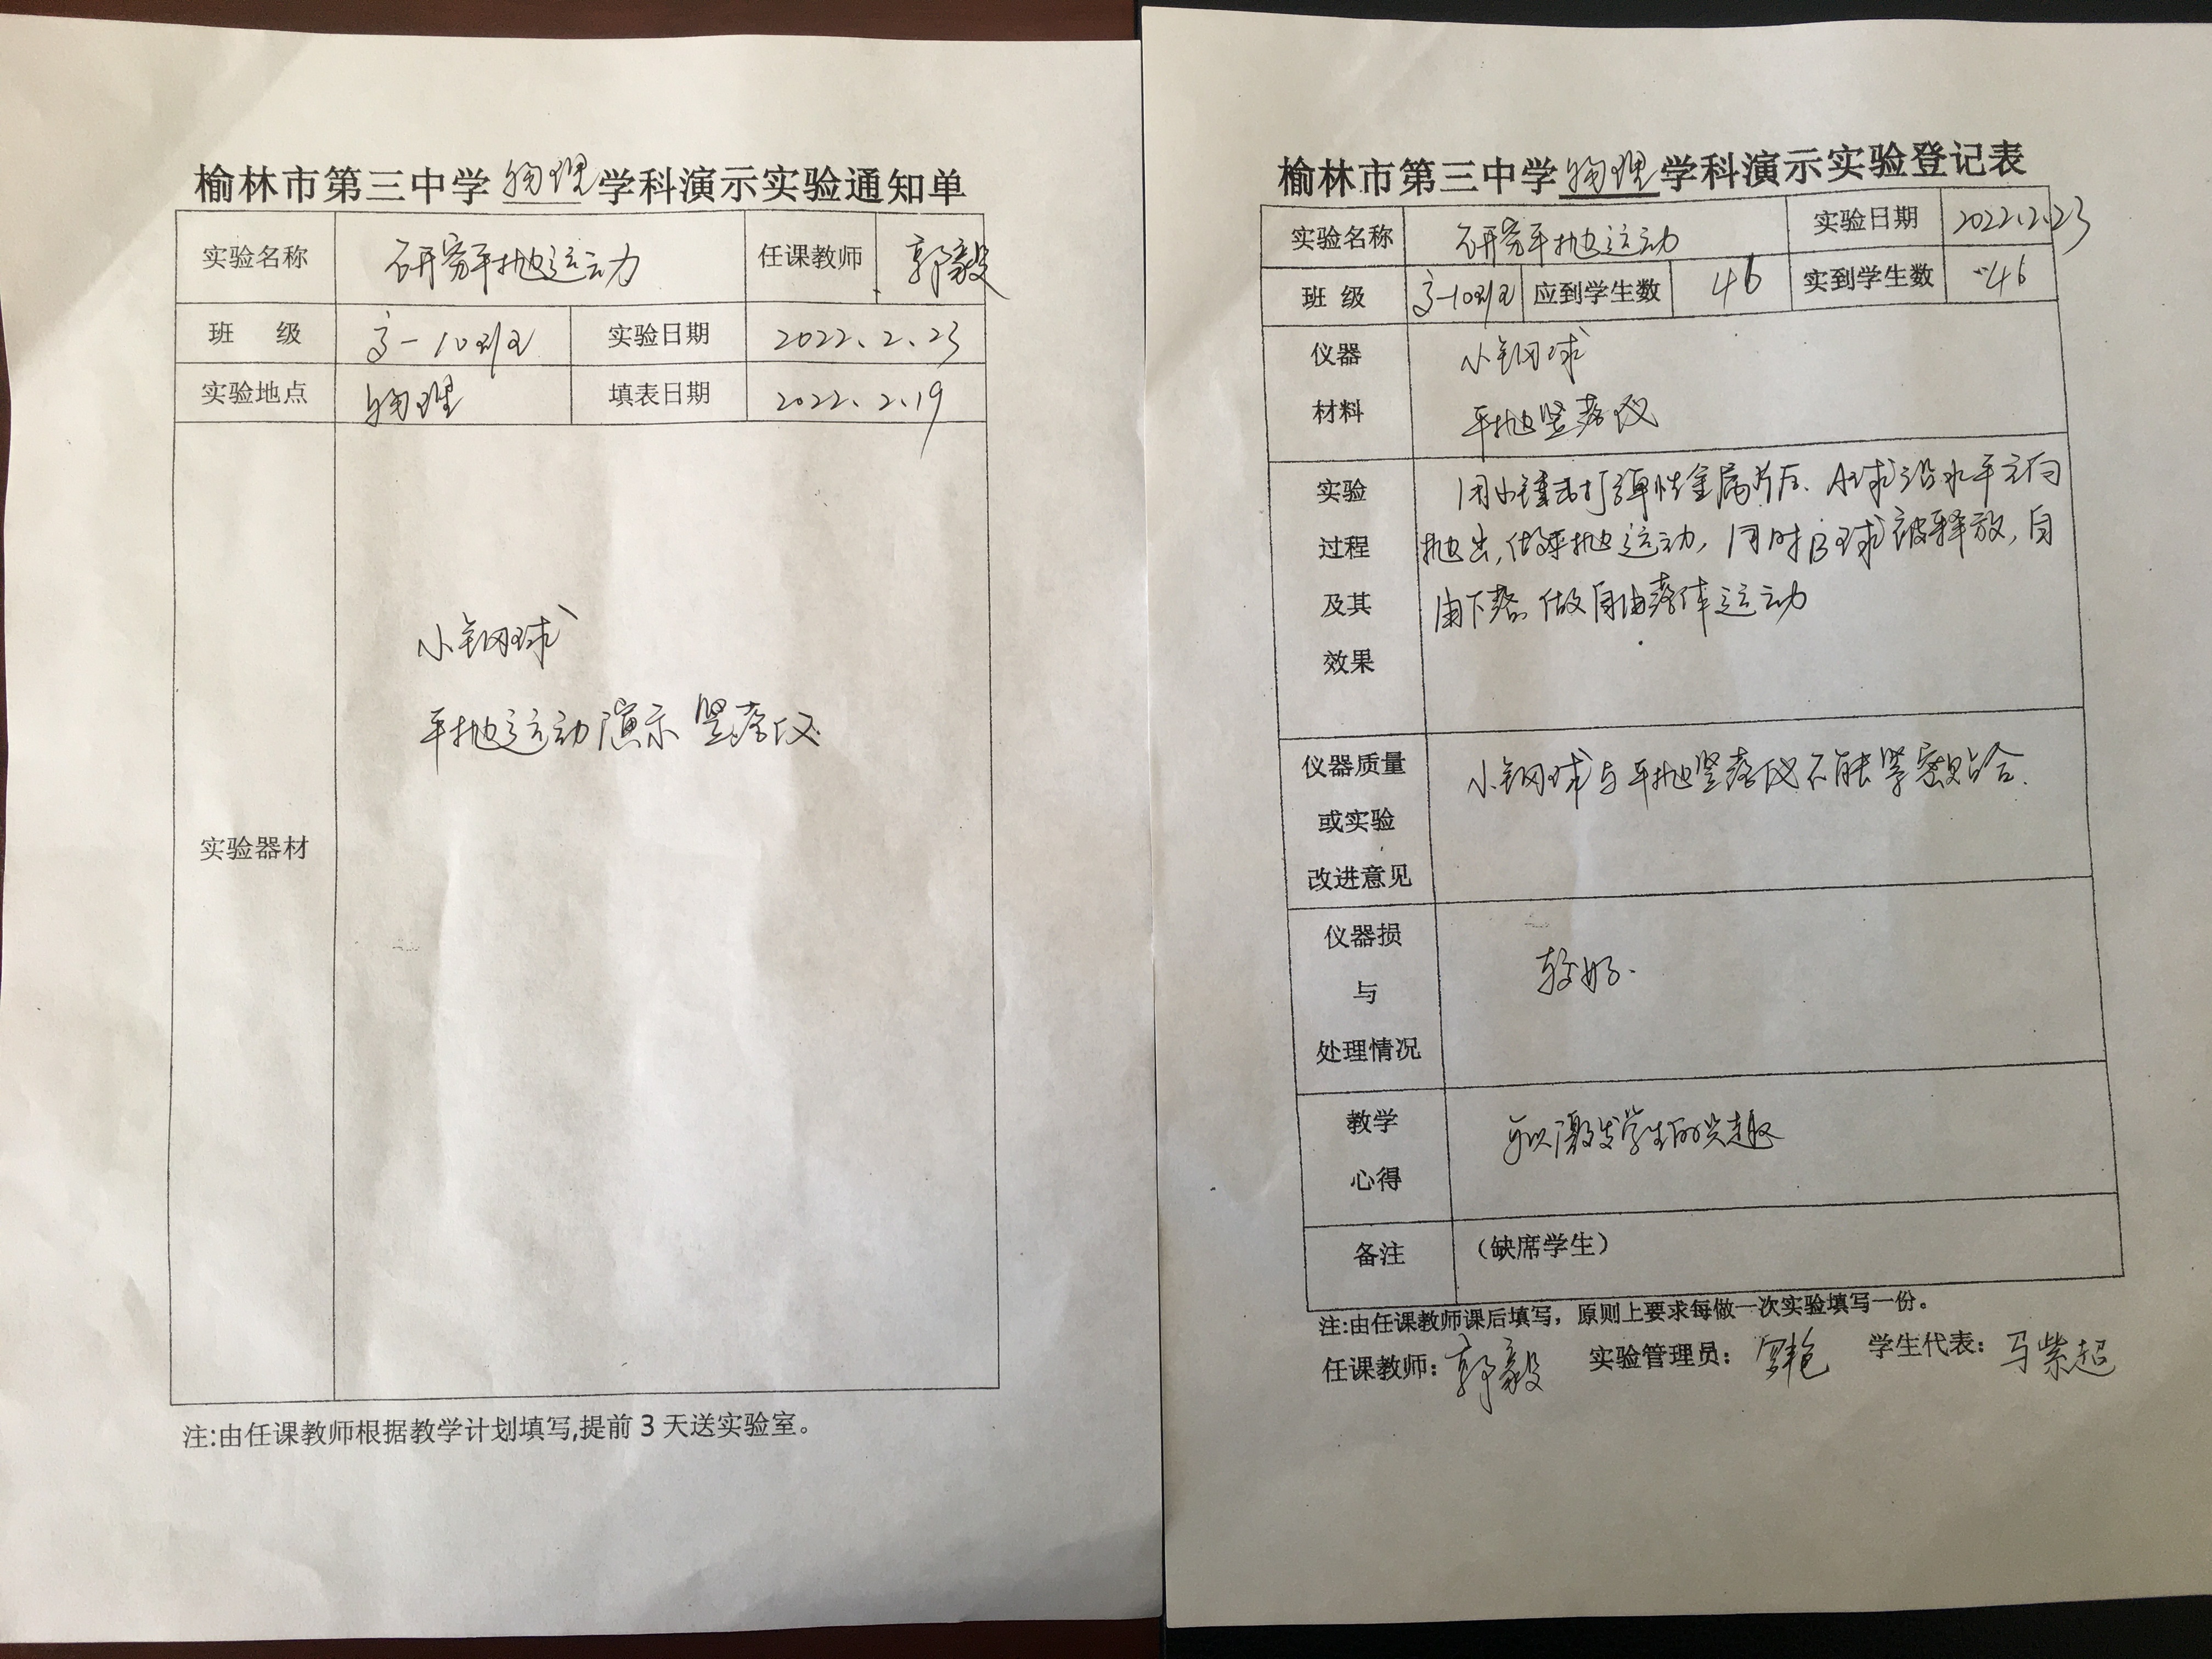 榆林市第三中学 物理 学科演示实验通知单
实验名称 研究平抛运动 任课教师 郭毅
班 级 高一10班 实验日期 2022.2.23
实验地点 物理 填表日期 2022.2.19
实验器材
小钢球
平抛运动演示竖落仪
注:由任课教师根据教学计划填写,提前3天送实验室。
榆林市第三中学 物理 学科演示实验登记表
实验名称 研究平抛运动 实验日期 2022.2.23
班 级 高一10班 应到学生数 46 实到学生数 46
仪器材料
小钢球
平抛竖落仪
实验过程及其效果
用小锤击打弹性金属片后、A球沿水平方向
抛出,做平抛运动,同时B球被释放,自
由下落。做自由落体运动
仪器质量或实验改进意见
小钢球与平抛竖落仪不能紧密贴合.
仪器损与处理情况
较好.
教学心得
可以激发学生的兴趣
备注 （缺席学生）
注:由任课教师课后填写，原则上要求每做一次实验填写一份。
任课教师: 郭毅 实验管理员: 学生代表: 马紫超